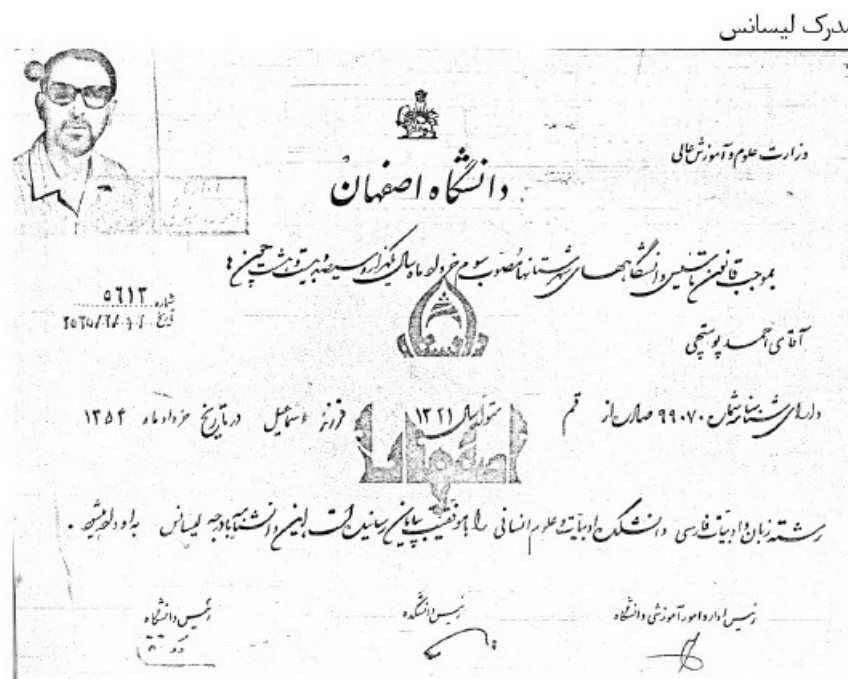 مدرک لیسانس
وزارت علوم و آموزش عالی
دانشگاه اصفهان
بموجب قانون تأسیس دانشگاههای شهرستانها مصوب سوم خرداد ماه سال یکهزار و سیصد و بیست و هشت
شماره ٥٦١٣
تاریخ
آقای احمد پوستچی
دارای شناسنامه شماره ٩٩٠٧٠ صادره از قم متولد سال ١٣٢١ فرزند اسماعیل در تاریخ خرداد ماه ١٣٥٤
رشته زبان و ادبیات فارسی دانشکده ادبیات و علوم انسانی را با موفقیت بپایان رسانیده است این دانشنامه با درجه لیسانس به او داده میشود .
رئیس اداره امور آموزشی دانشگاه
رئیس دانشکده
رئیس دانشگاه